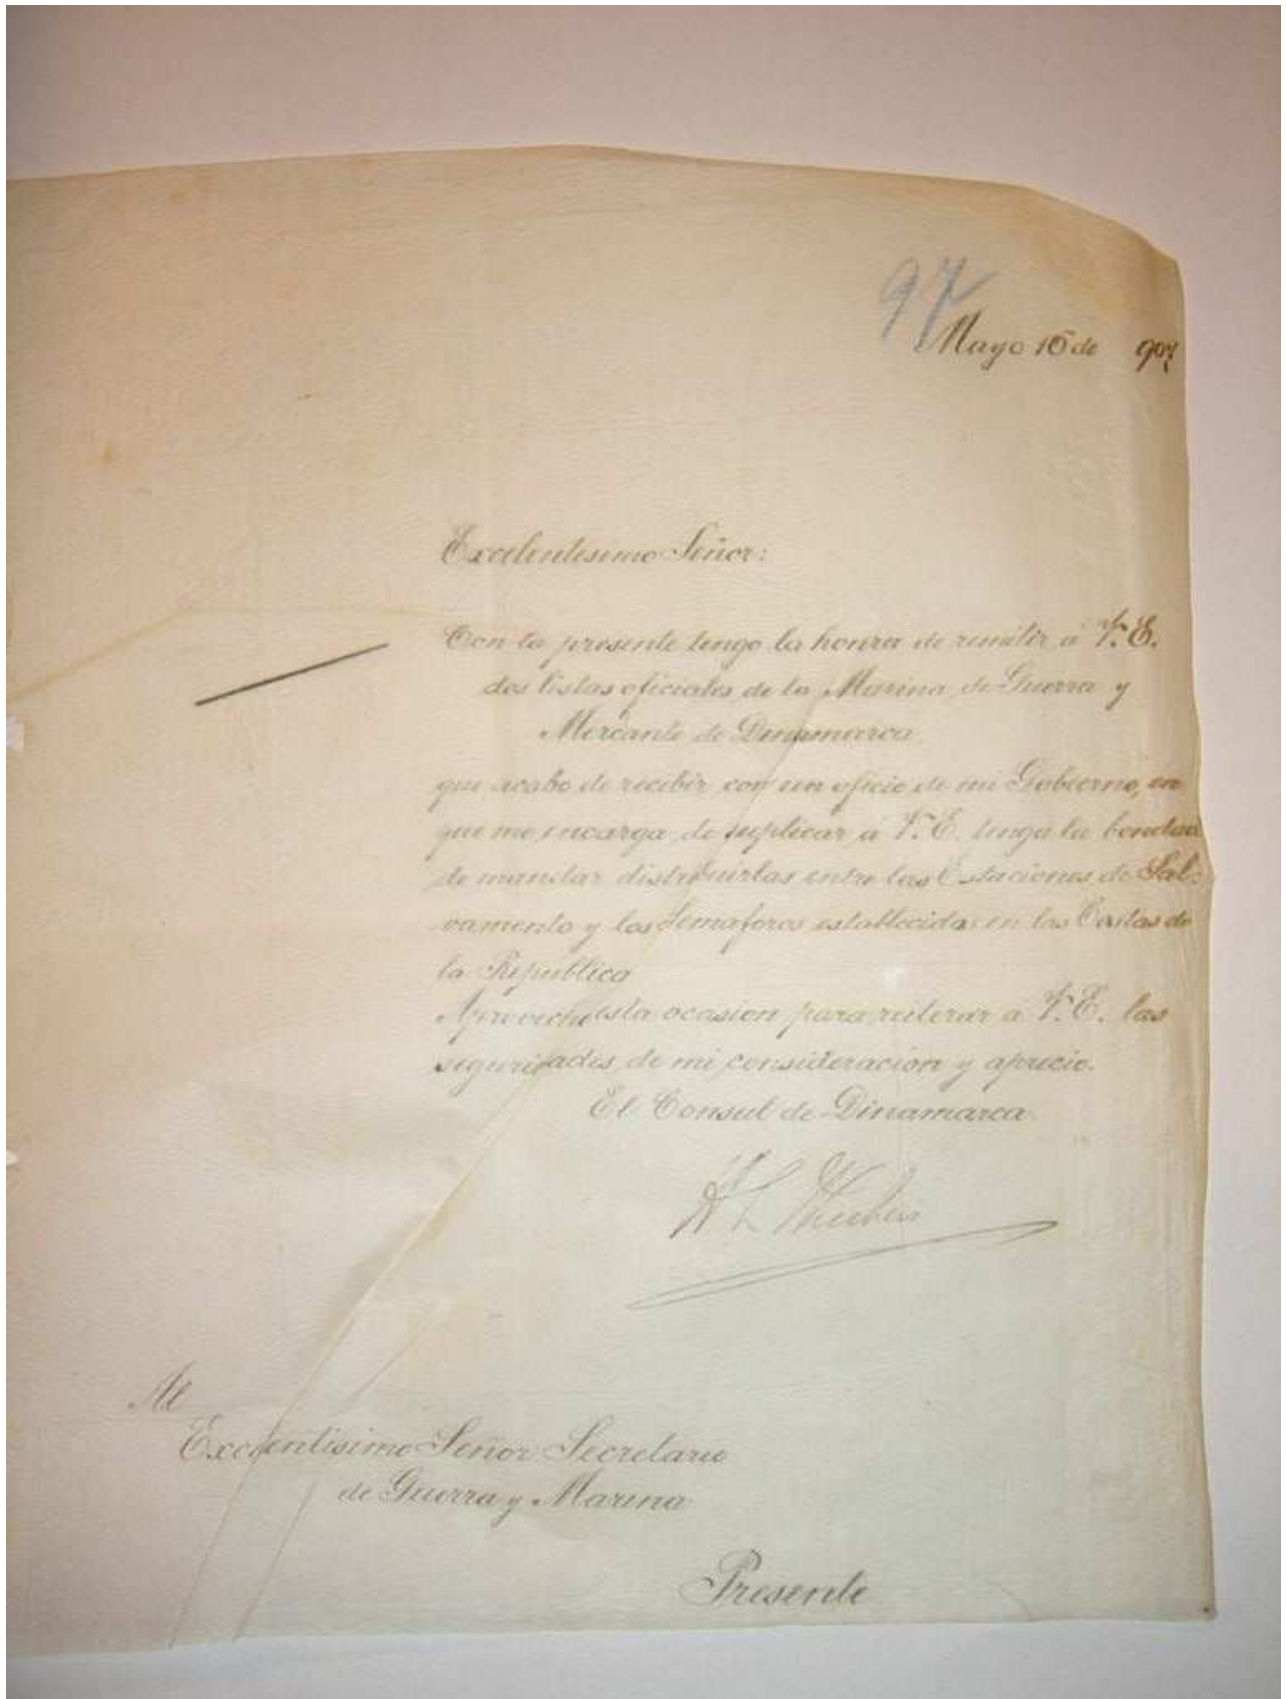 97
Mayo 16 de 907
Excelentisimo Señor:
Con la presente tengo la honra de remitir á V. E.
dos listas oficiales de la Marina de Guerra y
Mercante de Dinamarca
que acabo de recibir con un oficio de mi Gobierno, en
que me encarga de suplicar á V. E. tenga la bondad
de mandar distribuirlas entre las Estaciones de Sal-
vamento y los Semaforos establecidas en las Costas de
la Republica
Aprovecho esta ocasion para reiterar á V. E. las
seguridades de mi consideracion y aprecio.
El Consul de Dinamarca.
Al
Excelentisimo Señor Secretario
de Guerra y Marina
Presente